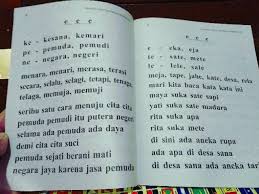 e e e
ke - kesana, kemari
pe - pemuda, pemudi
ne - negara, negeri
menara, menari, merasa, terasi
secara, selalu, selagi, tetapi, tenaga,
telaga, memuja, memuji
seribu satu cara menuju cita cita
pemuda pemudi itu putera negeri
selama ada pemuda ada daya
demi cita cita suci
pemuda sejati berani mati
negara jaya karena jasa pemuda
e e e
e - eka, eja
te - sate, mete
le - tele, sate
meja, tape, jahe, kate, desa, reka
mari kita baca kata kata ini
maya suka sate sapi
yati suka sate madura
rita suka apa
rita suka mete
di sini ada aneka rupa
ada apa di desa sana
di desa sana ada aneka